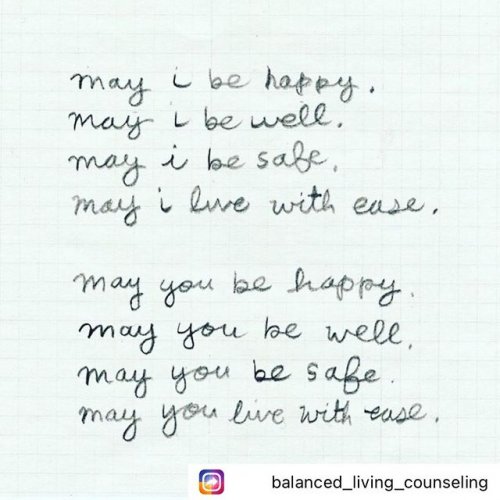 may i be happy.
may i be well.
may i be safe.
may i live with ease.
may you be happy.
may you be well.
may you be safe.
may you live with ease.
balanced_living_counseling